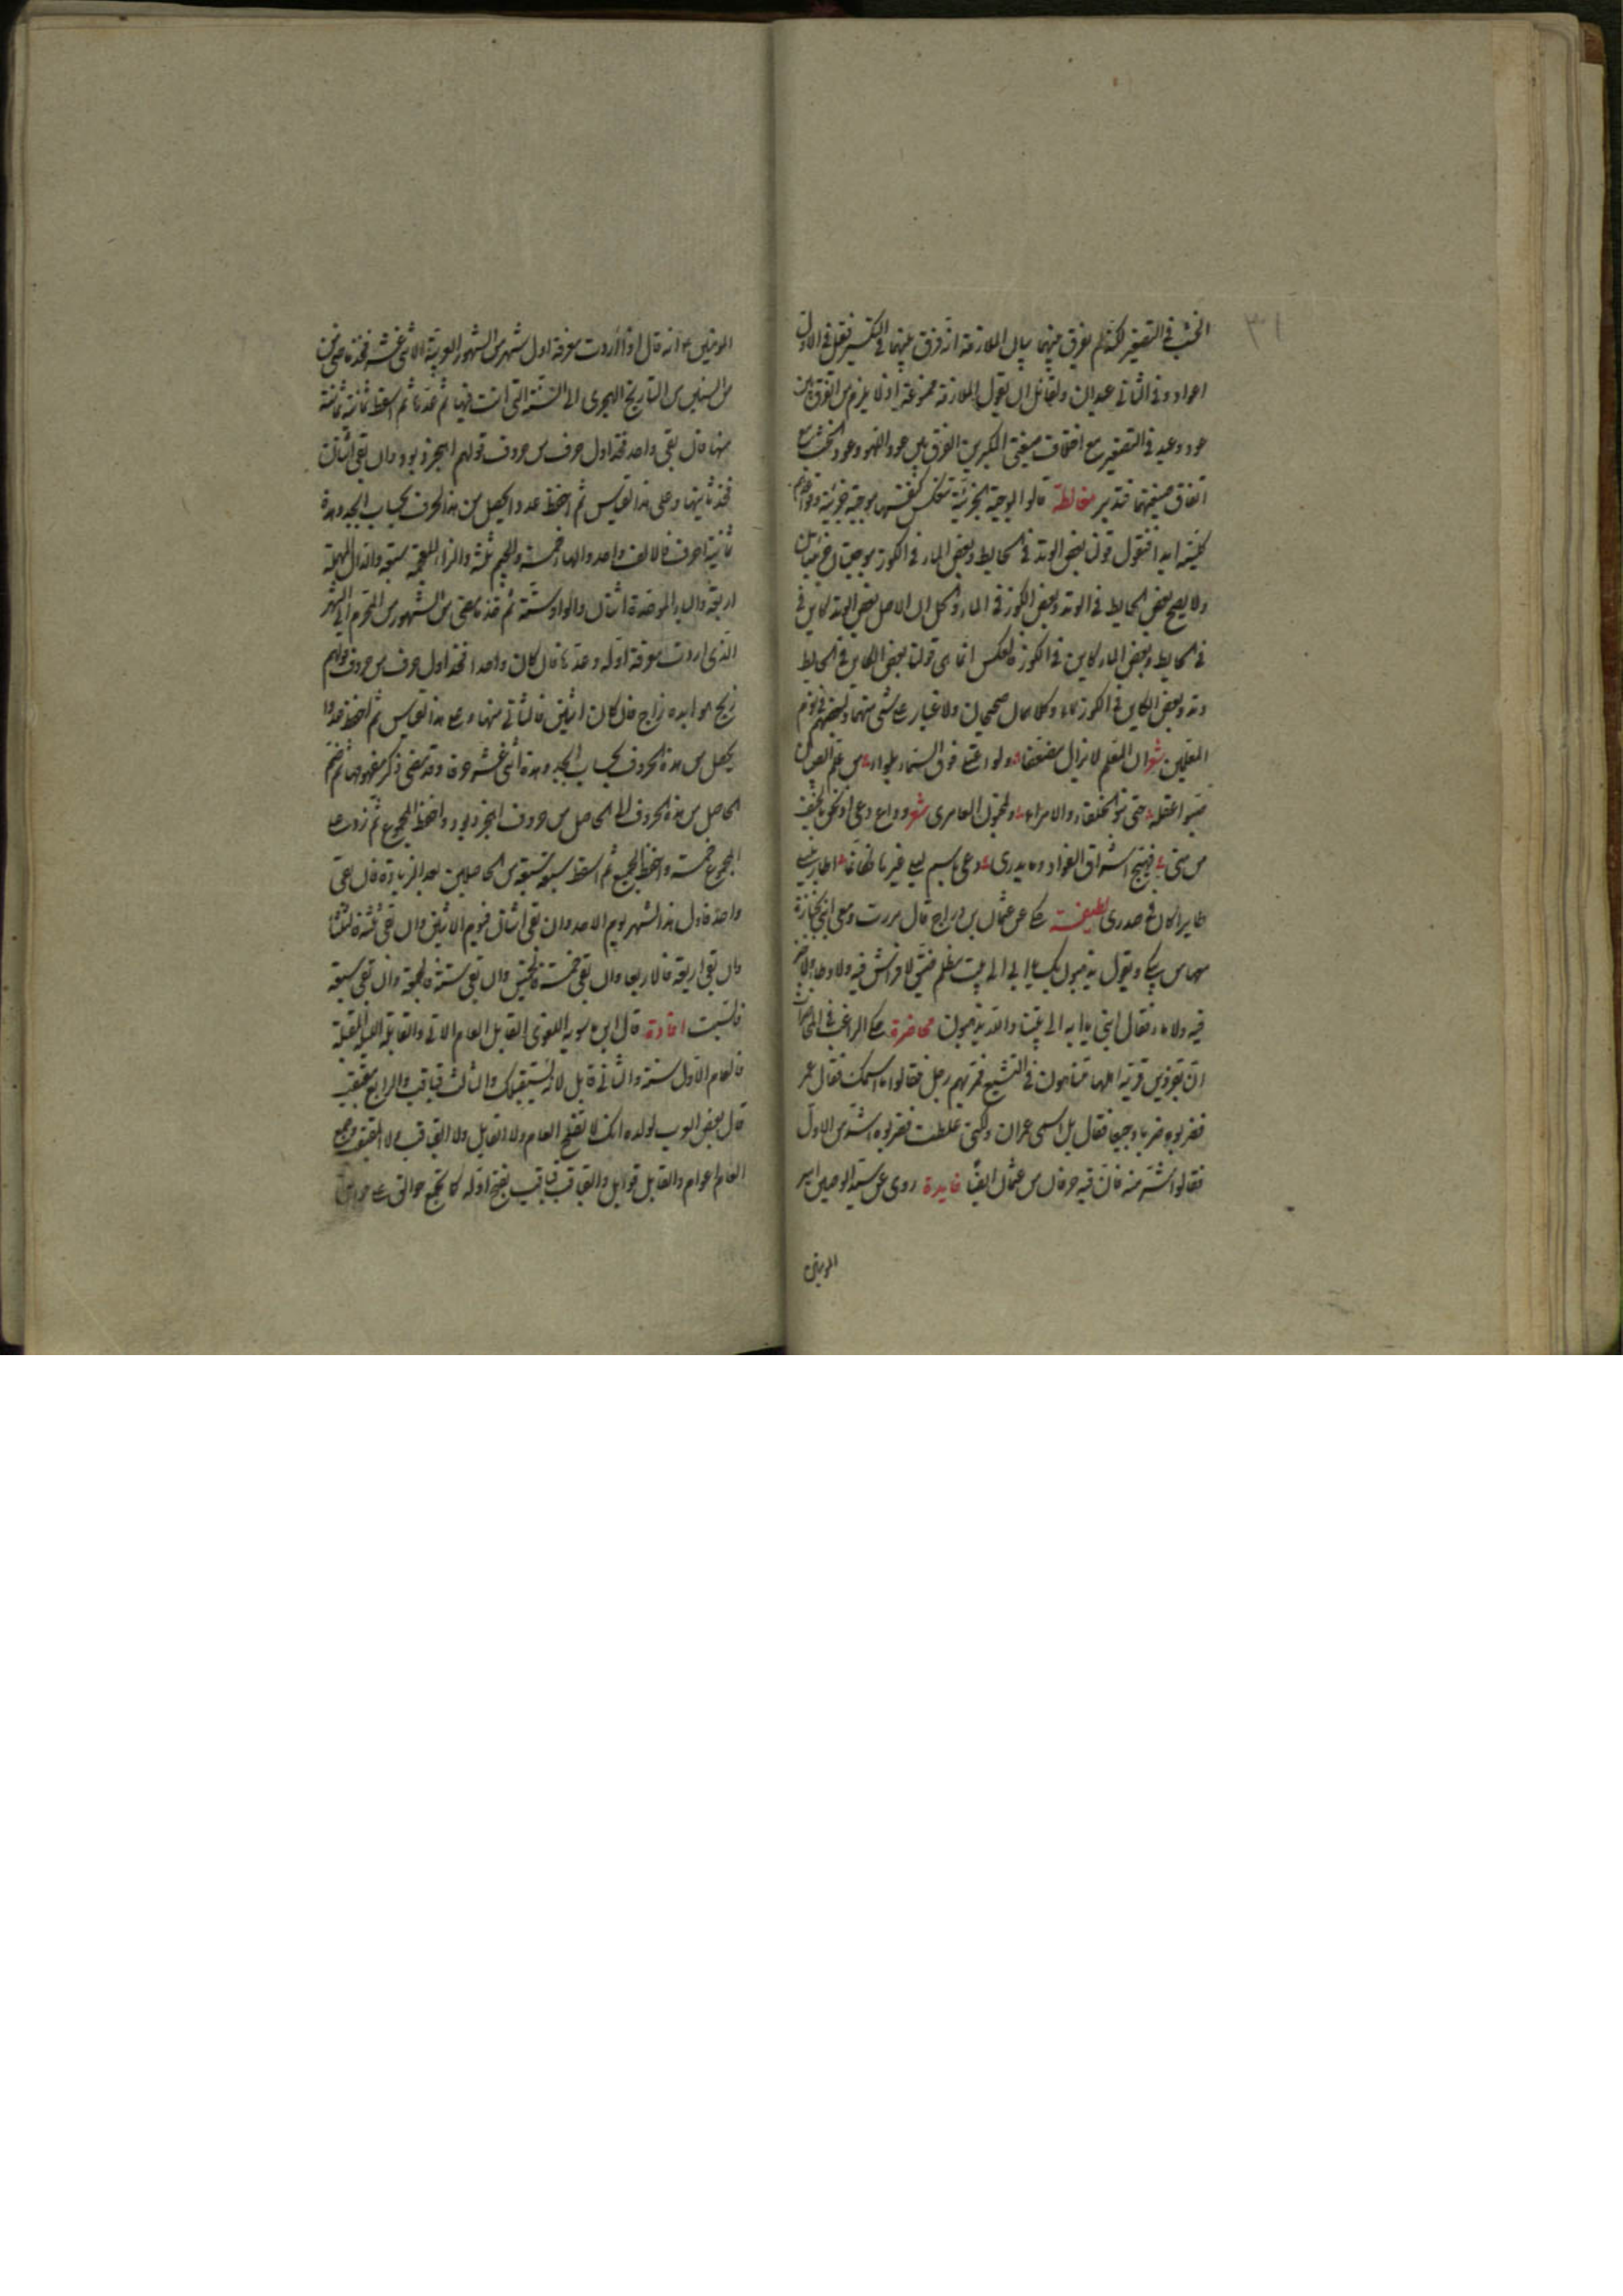 ٣١
الخشب في التصغير لكنه لم يفرق بينهما بيان الملازمة انه فرق بينهما في التكسير فقيل في الاول
اعواد وفي الثاني عيدان ولقائل ان يقول الملازمة ممنوعة اذ لا يلزم من الفرق بين
عود وعيد في التصغير مع اختلاف صيغتي المكبرين الفرق بين عود اللهو وعود الخشب مع
اتفاق صيغتهما فتدبر مغالطة قالوا الموجبة الجزئية تنعكس كنفسها موجبة جزئية
كلية ابدا فنقول قولنا بعض الوتد في الحايط وبعض الماء في الكوز موجبتان جزئيتان
ولا يصح بعض الحايط في الوتد وبعض الكوز في الماء والحل ان الاصل بعض الوتد كاين في
في الحايط وبعض الماء كاين في الكوز فالعكس انما هي قولنا بعض الكاين في الحايط
وتد وبعض الكاين في الكوز ماء وكلاهما صحيحان ولا غبار على شيء منهما ولبعضهم في ذم
المعلمين شعر ان المعلم لا يزال مضعفا ولو اعتلى فوق السماء لواء من علم الصبيان
صبوا عقله حتى بنو الخلفاء والامراء ولمجنون العامري شعر وداع دعى اذ نحن بالخيف
من منى فهيج اشواق الفؤاد وما يدري دعى باسم ليلى غيرها فكانما اطار بليلى
طايرا كان في صدري لطيفة حكي عن عثمان بن دراج قال مررت ومعي ابني بجنازة
مع اهلها من يبكي ويقول يذهبون بك يا ابي الى بيت مظلم ضيق لا فراش فيه ولا وطاء ولا خبز
فيه ولا ماء فقال ابني يا ابه الى بيتنا والله يذهبون محاضرة حكى الراغب في المحاضرات
ان بقزوين قرية اهلها متناهون في التشيع فمر بهم رجل فقالوا ما اسمك فقال عمر
فضربوه ضربا وجيعا فقال بل اسمي عمران ولكني غلطت فضربوه اشد من الاول
فقالوا اشد منه فان فيه حرفان من عثمان ايضا فايدة روى عن سيد الوصيين امير
المؤمنين
المؤمنين ع انه قال اذا اردت معرفة اول شهر من الشهور العربية الاثني عشر فخذ ما مضى من
من السنين من التاريخ الهجري الى السنة التي انت فيها ثم عدها ثم اسقط ثمانية ثمانية
منها فان بقي واحد فخذ اول حرف من حروف قولهم اهجز دبود وان بقي اثنان
فخذ ثانيتها وعلى هذا القياس ثم احفظ عدد ما يحصل من هذا الحرف بحساب الجمل وهذه
ثمانية احرف فالالف واحد والهاء خمسة والجيم ثلثة والزاء المعجمة سبعة والدال المهملة
اربعة والباء الموحدة اثنان والواو ستة ثم خذ ما مضى من الشهور من المحرم الى الشهر
الذي اردت معرفة اوله وعدها فان كان واحدا فخذ اول حرف من حروف قولهم
زبج هوابده زاج فان كان اثنين فالثاني منها وعلى هذا القياس ثم احفظ عدد ما
يحصل من هذه الحروف بحساب الجمل وهذه اثنى عشر حرفا وقد مضى ذكر مفهومها ثم تضم
الحاصل من هذه الحروف الى الحاصل من حروف اهجز دبود واحفظ المجموع ثم زد على
المجموع خمسة واحفظ الجميع ثم اسقط سبعة سبعة من الحاصلين بعد الزيادة فان بقي
واحد فاول هذا الشهر يوم الاحد وان بقي اثنان فيوم الاثنين وان بقي ثلثة فالثلثا
وان بقي اربعة فالاربعا وان بقي خمسة فالخميس وان بقي ستة فالجمعة وان بقي سبعة
فالسبت افادة قال ابن بابويه اللغوي القابل العام الاتي والقابلة الليلة المقبلة
فالعام الاول سنة والثاني قابل لانه يستقبلك والثالث قباقب والرابع مقبقب
قال بعض العرب لولده انك لا تفلح العام ولا القابل ولا القباقب ولا المقبقب وجمع
العام اعوام والقابل قوابل والقباقب قباقب بفتح اوله كما يجمع جوالق على جوالق